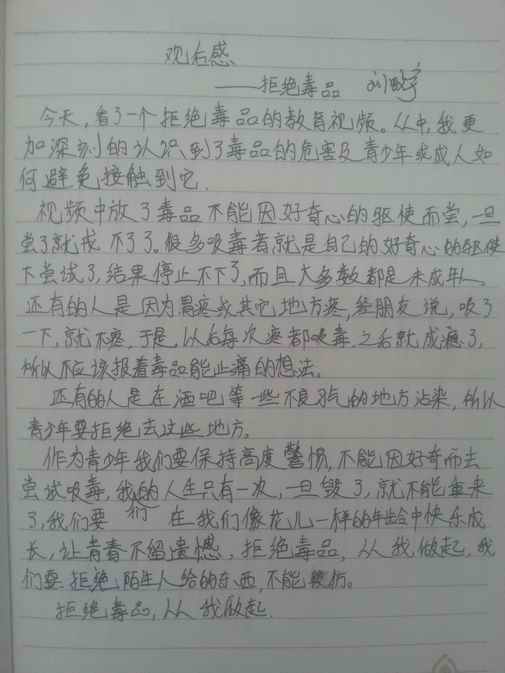 观后感
——拒绝毒品 刘
今天,看了一个拒绝毒品的教育视频。从中,我更
加深刻的认识到了毒品的危害及青少年或成人如
何避免接触到它.
视频中放了毒品不能因好奇心的驱使而尝,一旦
尝了就戒不了了。很多吸毒者就是自己的好奇心的驱使
下尝试了,结果停止不下了,而且大多数都是未成年人。
还有的人是因为胃疼或其它地方疼,经朋友说,吸了
一下,就不疼,于是,以后每次疼都吸毒.之后就成瘾了,
所以不应该报着毒品能止痛的想法.
还有的人是在酒吧等一些不良习气的地方沾染,所以
青少年要拒绝去这些地方.
作为青少年我们要保持高度警惕,不能因好奇而去
尝试吸毒,我的人生只有一次,一旦毁了,就不能重来
了,我们要 在我们像花儿一样的年龄中快乐成
长,让青春不留遗憾,拒绝毒品,从我做起,我
们要拒绝陌生人给的东西,不能模仿。
拒绝毒品,从我做起.